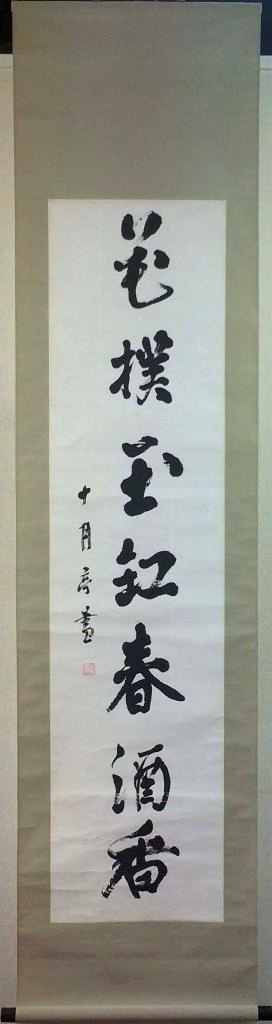 花撲玉缸春酒香
十月